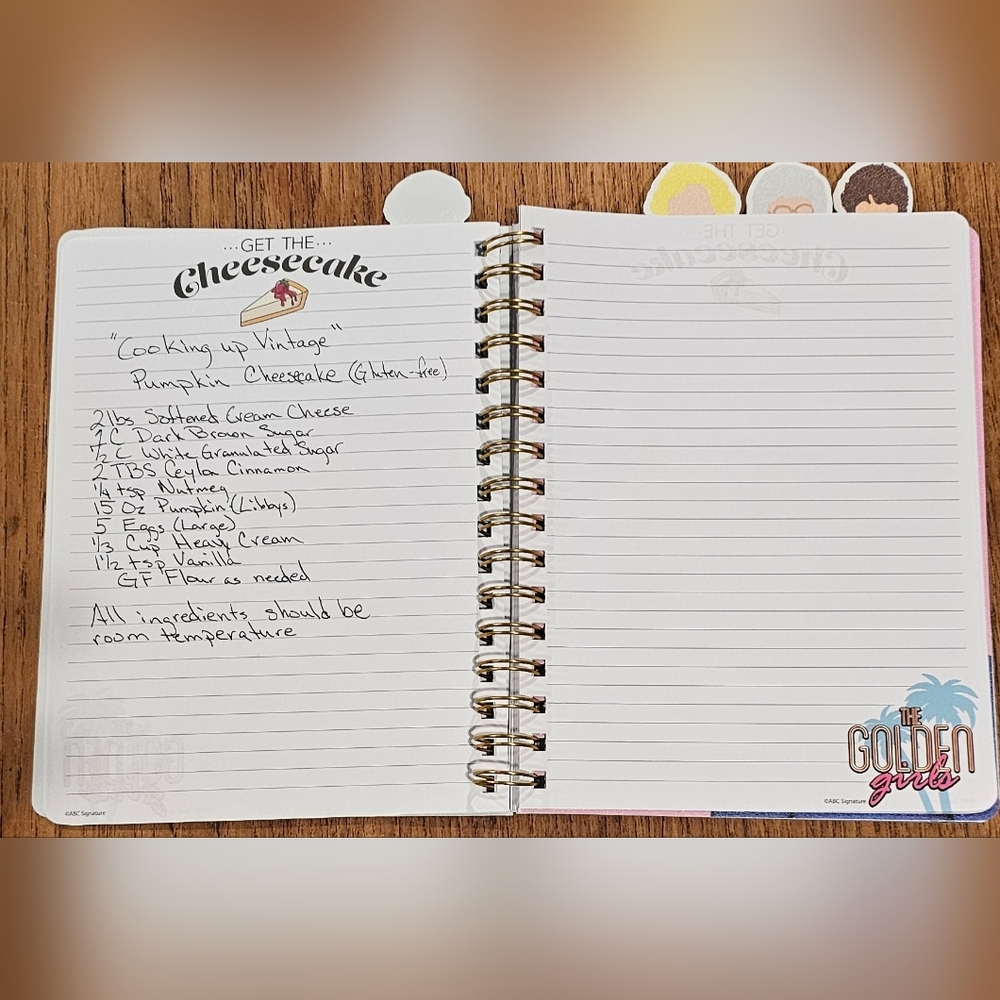 ...GET THE...
Cheesecake
"Cooking up Vintage"
Pumpkin Cheesecake (Gluten-free)
2 lbs Softened Cream Cheese
1 C Dark Brown Sugar
1/2 C White Granulated Sugar
2 TBS Ceylon Cinnamon
1/4 tsp Nutmeg
15 Oz Pumpkin (Libbys)
5 Eggs (Large)
1/3 Cup Heavy Cream
1 1/2 tsp Vanilla
GF Flour as needed
All ingredients should be
room temperature
©ABC Signature
THE
GOLDEN
girls
©ABC Signature